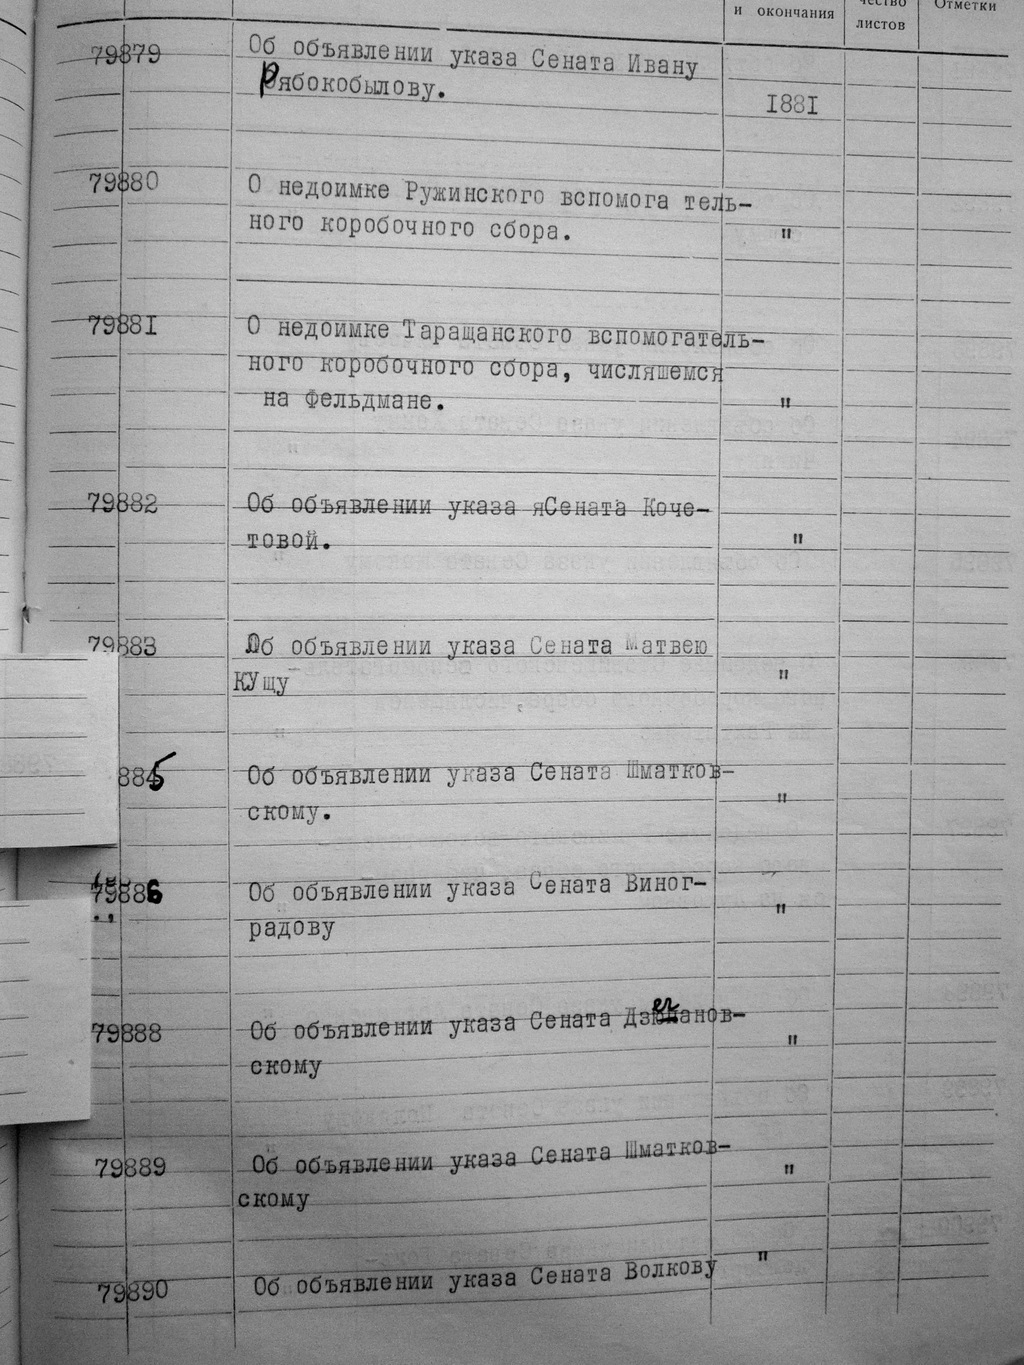 и окончания
чество
листов
Отметки
79879
Об объявлении указа Сената Ивану
Рябокобылову.
I88I
79880
О недоимке Ружинского вспомога тель-
ного коробочного сбора.
"
7988I
О недоимке Таращанского вспомогатель-
ного коробочного сбора, числяшемся
на Фельдмане.
"
79882
Об объявлении указа яСената Коче-
товой.
"
79883
Об объявлении указа Сената Матвею
КУщу
"
885
Об объявлении указа Сената Шматков-
скому.
"
79886
Об объявлении указа Сената Виног-
радову
"
79888
Об объявлении указа Сената
скому
"
79889
Об объявлении указа Сената Шматков-
скому
"
79890
Об объявлении указа Сената Волкову
"